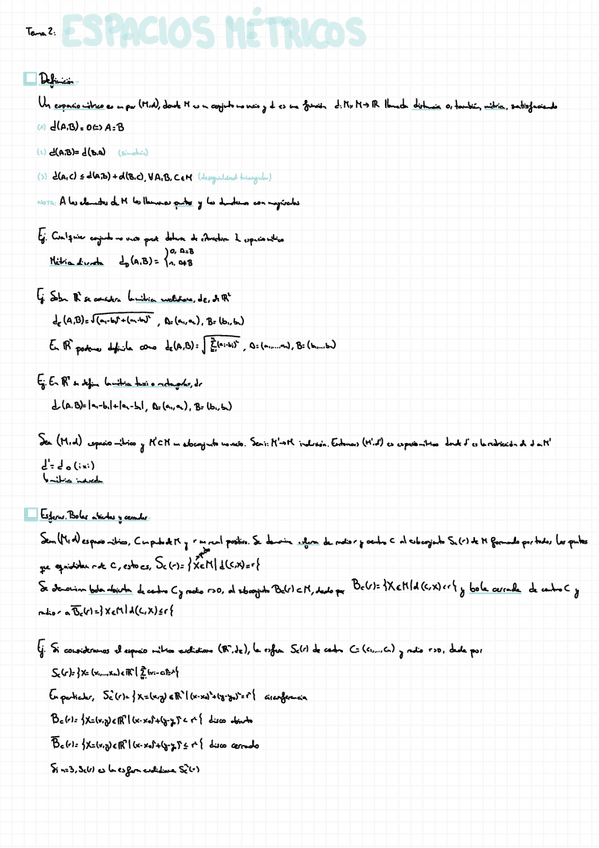 Tema 2: ESPACIOS MÉTRICOS
Definición
Un espacio métrico es un par (M,d), donde M es un conjunto no vacío y d es una función d: M×M→ℝ llamada distancia o, también, métrica, satisfaciendo
(1) d(A,B)=0⇔A=B
(2) d(A,B)=d(B,A) (simetría)
(3) d(A,C)≤d(A,B)+d(B,C), ∀A,B,C∈M (desigualdad triangular)
NOTA: A los elementos de M los llamamos puntos y los denotamos con mayúsculas
Ej. Cualquier conjunto no vacío puede dotarse de estructura de espacio métrico
Métrica discreta d₀(A,B)={0, A=B
1, A≠B
Ej. Sobre ℝ² se considera la métrica euclidiana, dₑ, de ℝ²
dₑ(A,B)=√(a₁-b₁)²+(a₂-b₂)², A=(a₁,a₂), B=(b₁,b₂)
En ℝⁿ podemos definirla como dₑ(A,B)=√Σ(aᵢ-bᵢ)², A=(a₁,...,aₙ), B=(b₁,...,bₙ)
Ej. En ℝ² se define la métrica taxi o rectangular, dₜ
dₜ(A,B)=|a₁-b₁|+|a₂-b₂|, A=(a₁,a₂), B=(b₁,b₂)
Sea (M,d) espacio métrico y M'⊂M un subconjunto no vacío. Sea i: M'→M inclusión. Entonces (M',d') es espacio métrico donde d' es la restricción de d a M'
d'=d∘(i×i)
métrica inducida
Esferas, Bolas abiertas y cerradas
Sean (M,d) espacio métrico, C un punto de M y r un real positivo. Se denomina esfera de radio r y centro C al subconjunto Sc(r) de M formado por todos los puntos
que equidistan r de C, esto es, Sc(r)={X∈M|d(C,X)=r}
Se denomina bola abierta de centro C y radio r>0, al subconjunto Bc(r)⊂M, dado por Bc(r)={X∈M|d(C,X)<r} y bola cerrada de centro C y
radio r a B̄c(r)={X∈M|d(C,X)≤r}
Ej. Si consideramos el espacio métrico euclidiano (ℝⁿ,dₑ), la esfera Sc(r) de centro C=(c₁,...,cₙ) y radio r>0, dada por
En particular, circunferencia
disco abierto
disco cerrado
Si n=3, Sc(r) es la esfera euclidiana